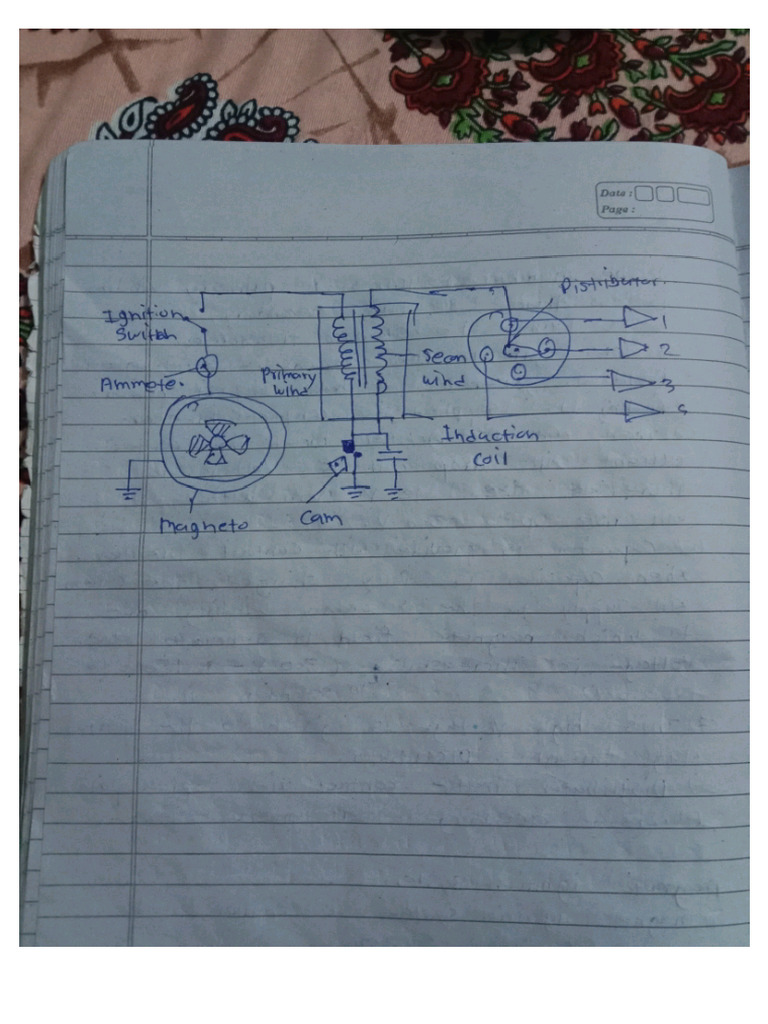 Date :
Page :
Distributor.
Ignition
Switch
1
2
Ammete.
Primary
wind
Secon
wind
3
Induction
coil
Magneto
Cam